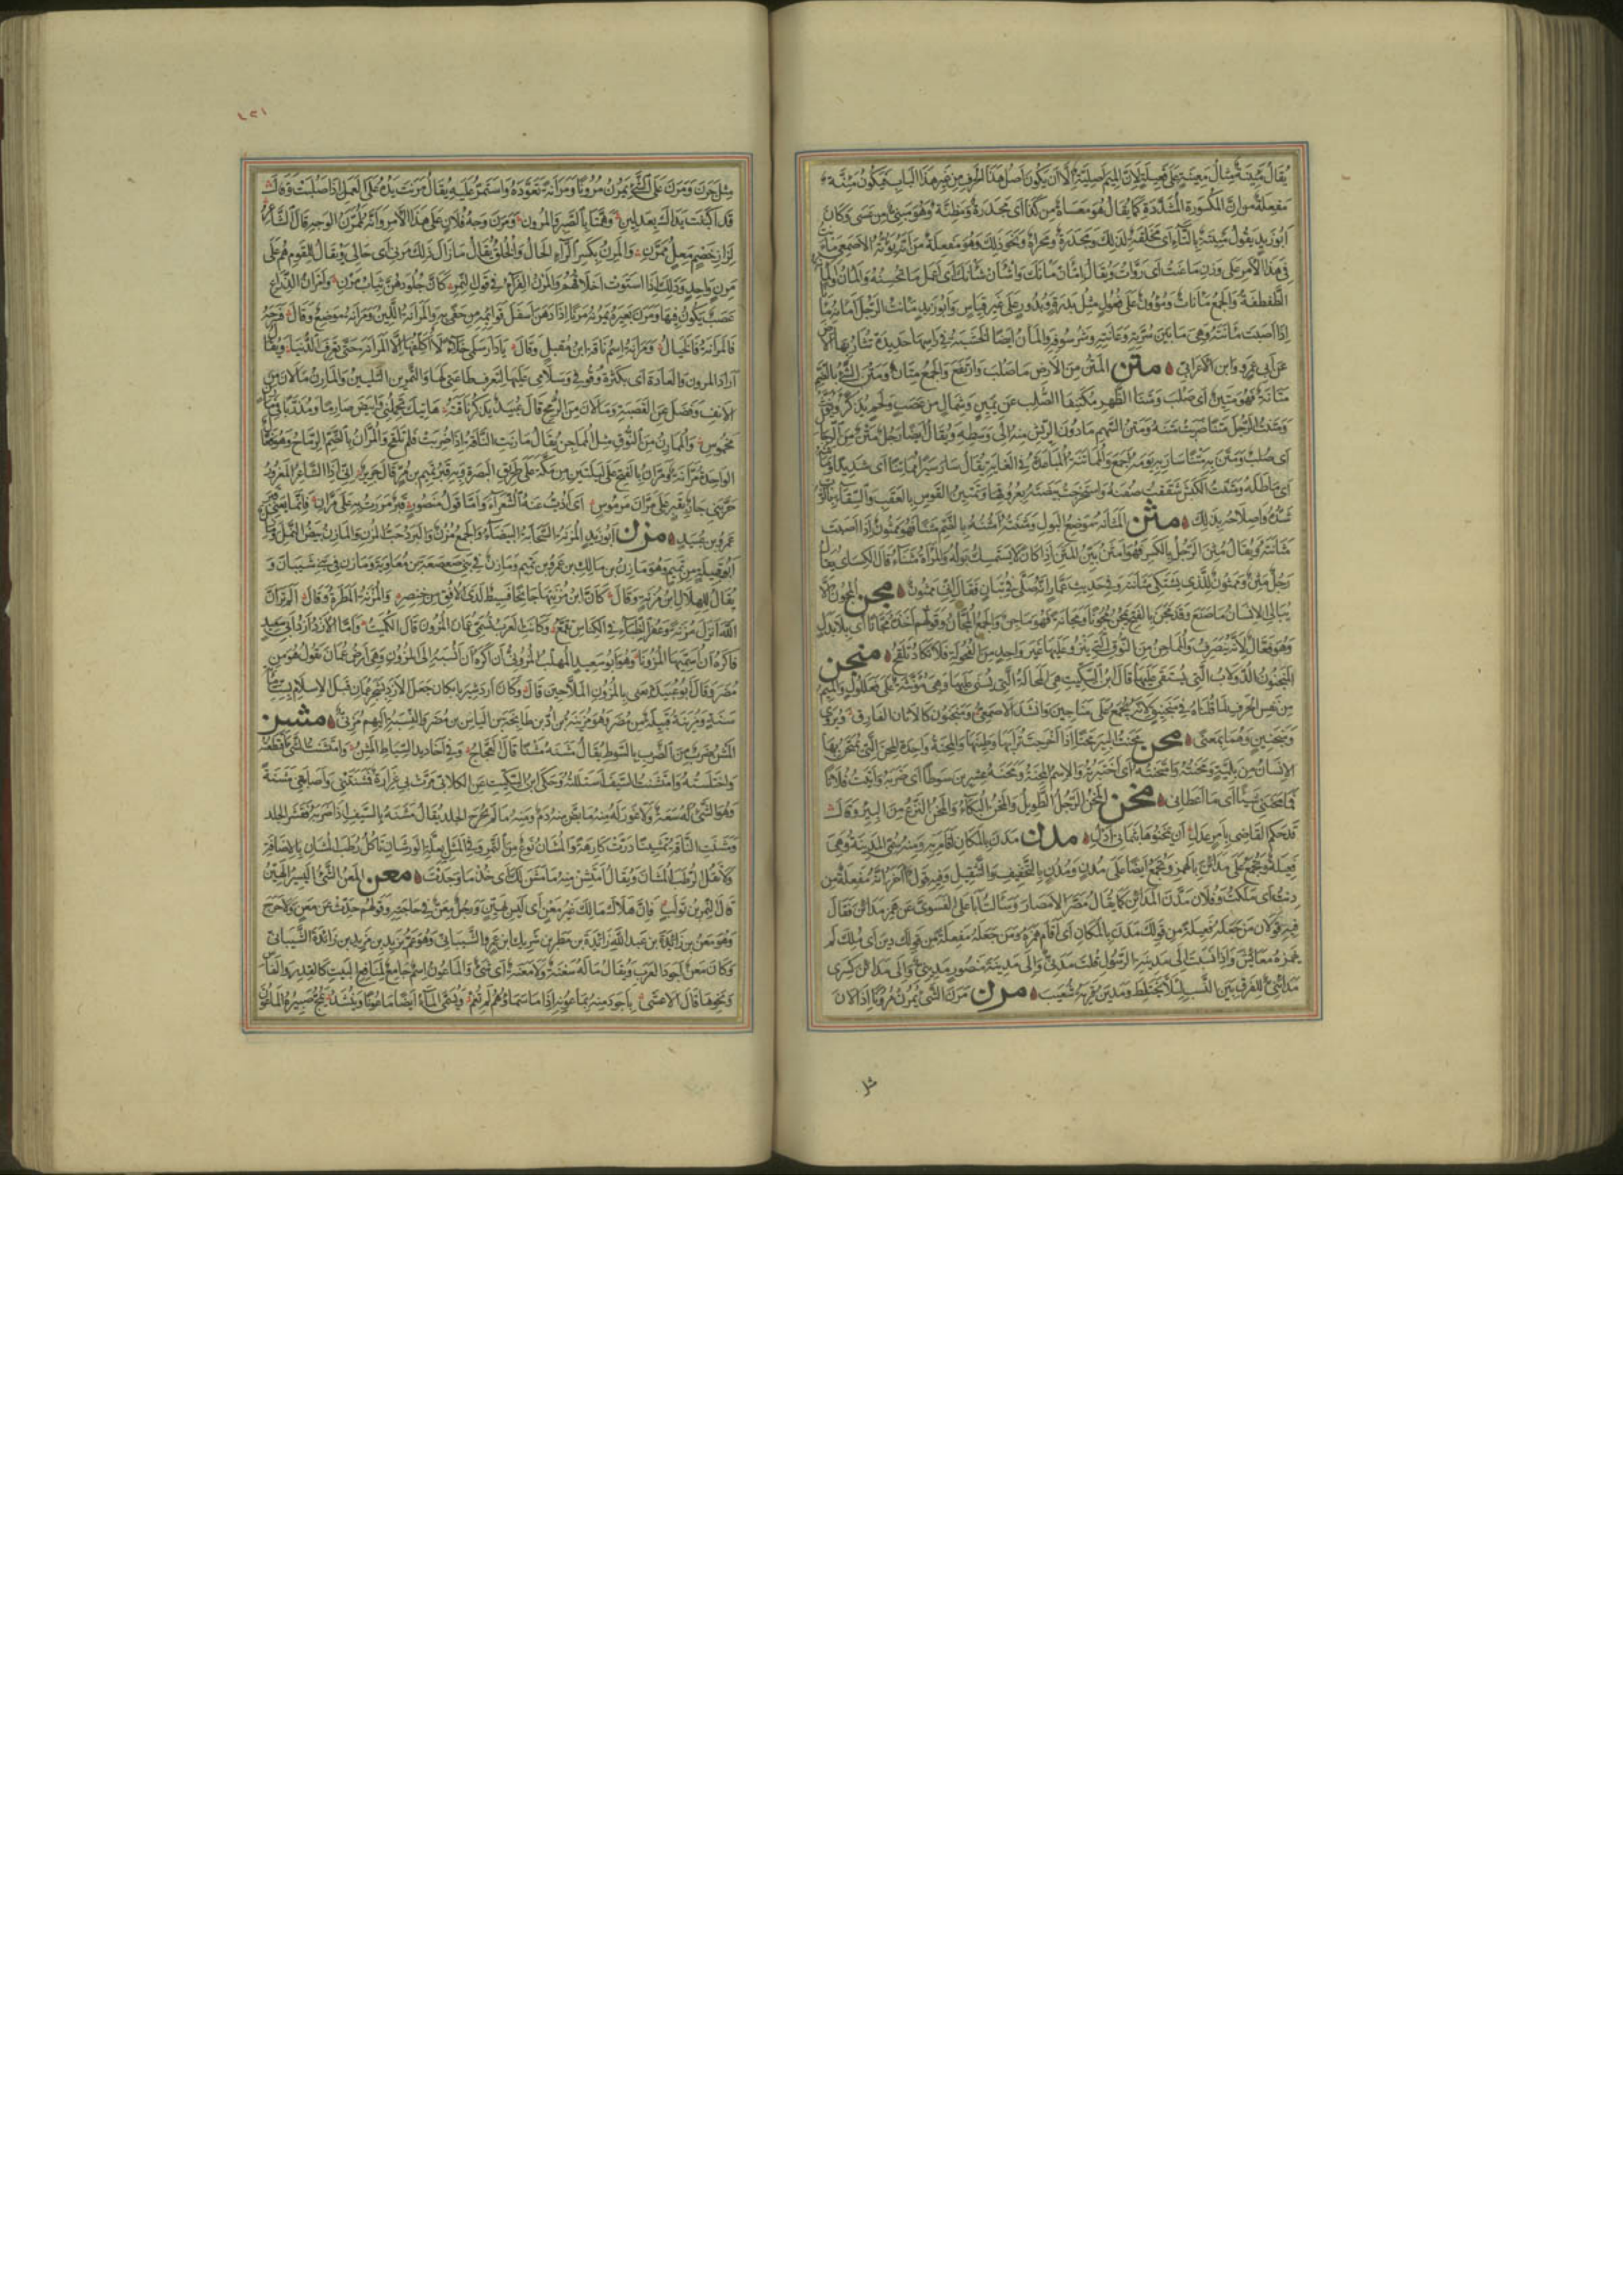 يقال مئنة مثال معينة على فعيلة لان الميم اصلية الا ان يكون اصل هذا الحرف من غير هذا الباب فيكون مئنة
مفعلة من ان المكسورة المشددة كما يقال هو معساة من كذا اى مجدرة ومظنة وهو مبنى من عسى وكان
ابو زيد يقول مئتة بالتاء اى مخلقة لذلك ومجدرة ومحراة ونحو ذلك وهو مفعلة من اته يؤته الاصمعى ماءنت
فى هذا الامر على وزن ماعنت اى روات ويقال امان مانك واشان شانك اى اعمل ما تحسنه والمان والمانة
الطفطفة والجمع مانات ومؤون على فعول مثل بدرة وبدور على غير قياس وابو زيد مانت الرجل امانه مانا
اذا اصبت مانته وهى ما بين سرته وعانته وشرسوفه والمان ايضا الخشبة فى راسها حديدة تثار بها الارض
عن ابى عمرو وابن الاعرابى متن المتن من الارض ما صلب وارتفع والجمع متان ومتن الشئ بالضم
متانة فهو متين اى صلب ومتنا الظهر مكتنفا الصلب عن يمين وشمال من عصب ولحم يذكر ويؤنث
ومتنت الرجل متنا ضربت متنه ومتن السهم ما دون الريش منه الى وسطه ويقال ايضا رجل متن من الرجال
اى صلب ومتن به متنا سار به يومه اجمع والمماتنة المباعدة فى الغاية يقال سار سيرا مماتنا اى شديدا وماتنه
اى ماطله ومتنت الكبش شققت صفنه واستخرجت بيضته بعروقها وتمتين القوس بالعقب والسقاء بالرب
شده واصلاحه بذلك مثن المثانة موضع البول ومثنته امثنه بالضم مثنا فهو ممثون اذا اصبت
مثانته ويقال مثن الرجل بالكسر فهو امثن بين المثن اذا كان لا يستمسك بوله والمراة مثناء قال الكسائى يقال
رجل مثن وممثون للذى يشتكى مثانته وفى حديث عمار انه صلى فى تبان فقال انى ممثون مجن المجون الا
يبالى الانسان ما صنع وقد مجن بالفتح يمجن مجونا ومجانة فهو ماجن والجمع المجان وقولهم اخذه مجانا اى بلا بدل
وهو فعال لانه ينصرف والماجن من النوق التى ينزو عليها غير واحد من الفحولة فلا تكاد تلقح منجن
المنجنون الدولاب التى يستقى عليها قال ابن السكيت هى المحالة التى يسنى عليها وهى مؤنثة على فعللول والميم
من نفس الحرف لما قلناه فى منجنيق لانه يجمع على مناجين وانشد الاصمعى ومنجنون كالاتان الفارق ويروى
ومنجنين وهما بمعنى محن محنت البئر محنا اذا اخرجت ترابها وطينها والمحنة واحدة المحن التى يمتحن بها
الانسان من بلية ومحنته وامتحنته اى اختبرته والاسم المحنة ومحنه عشرين سوطا اى ضربه واتيت فلانا
فما محننى شيئا اى ما اعطانى مخن المخن الرجل الطويل والمخن البكاء والمخن النزع من البئر وقال
قد حكم القاضى بامر عدل ان تمخنوها بثمانى ادل مدن مدن بالمكان اقام به ومنه سمى المدينة وهى
فعيلة وتجمع على مدائن بالهمز وتجمع ايضا على مدن ومدن بالتخفيف والتثقيل وفيه قول آخر انه مفعلة من
دنت اى ملكت وفلان مدن المدائن كما يقال مصر الامصار وسالت ابا على الفسوى عن همز مدائن فقال
فيه قولان من جعله فعيلة من قولك مدن بالمكان اى اقام همزه ومن جعله مفعلة من قولك دين اى ملك لم
يهمزه معايش واذا نسبت الى مدينة الرسول قلت مدنى والى مدينة منصور مدينى والى مدائن كسرى
مدائنى للفرق بين النسب لئلا يختلط ومدين قرية شعيب مرن مرن الشئ يمرن مرونا اذا لان
مثل
١٢٦
مثل جرن ومرن على الشئ يمرن مرونا ومرانة تعوده واستمر عليه يقال مرنت يده على العمل اذا صلبت وقال
قد اكنبت يداك بعد لين وهمتا بالصبر والمرون ومرن وجه فلان على هذا الامر وانه لممرن الوجه قال الشاعر
لزاز خصم معل ممرن والمرن بكسر الراء الحال والخلق يقال ما زال ذلك مرنى اى حالى ويقال القوم هم على
مرن واحد وذلك اذا استوت اخلاقهم والمرن الفراء فى قول النمر كان جلودهن ثياب مرن والمران الذراع
عصب يكون فيها ومرن بعيره يمرنه مرنا اذا دهن اسفل قوائمه من حفى به والمرانة اللين ومرانة موضع وقال
فالمرانة فالخيال ومرانة اسم ناقة ابن مقبل وقال يا دار سلمى خلاء لا اكلفها الا المرانة حتى تعرف الدينا ويقال
اراد المرون والعادة اى بكثرة وقوفى وسلامى عليها لتعرف طاعتى لها والتمرين التليين والمارن ما لان من
الانف وفضل عن القصبة وما لان من الرمح قال عبيد يذكر ناقته هاتيك تحملنى وابيض صارما ومذربا فى مارن
مخموس والممارن من النوق مثل المماجن يقال مارنت الناقة اذا ضربت فلم تلقح والمران بالضم الرماح وهو فعال
الواحدة مرانة ومران بالفتح على ليلتين من مكة على طريق البصرة وبه قبر تميم بن مر قال جرير انى اذا الشاعر المغرور
حربنى جار لقبر على مران مرموس اى اذب عنه الشعراء واما قول منصور قبر مررت به على مران فانما يعنى قبر
عمرو بن عبيد مزن ابو زيد المزنة السحابة البيضاء والجمع مزن والبرد حب المزن والمازن بيض النمل ومازن
ابو قبيلة من تميم وهو مازن بن مالك بن عمرو بن تميم ومازن فى بنى صعصعة بن معاوية ومازن فى بنى شيبان و
يقال للهلال ابن مزنة وقال كان ابن مزنتها جانحا فسيط لدى الافق من خنصر والمزنة المطرة وقال الم تر ان
الله انزل مزنة وعفر الظباء فى الكناس تقمع وكانت العرب تسمى عمان المزون قال الكميت واما الازد ازد ابى سعيد
فاكره ان اسميها المزونا وهو ابو سعيد المهلب المزونى اى اكره ان انسبه الى المزون وهى ارض عمان يقول هو من
مضر وقال ابو عبيدة يعنى بالمزون الملاحين قال وكان اردشير بابكان جعل الازد بشحر عمان قبل الاسلام بستمائة
سنة ومزينة قبيلة من مضر وهو مزينة بن اد بن طابخة بن الياس بن مضر والنسبة اليهم مزنى مشن
المشن ضرب من الضرب بالسوط يقال مشنه مشنا قال العجاج وفى اخاديد السياط المشن وامتشنت الشئ اقتطعته
واختلسته وامتشنت السيف استللته وحكى ابن السكيت عن الكلابى مرت بى غرارة فمشنتنى واصابتنى مشنة
وهو الشئ له سعة ولا غور له منه ما بض منه دم ومنه ما لم يجرح الجلد يقال مشنه بالسيف اذا ضربه فقشر الجلد
ومشنت الناقة تمشينا درت كارهة والمشان نوع من التمر وفى المثل بعلة الورشان تاكل رطب المشان بالاضافة
ولا تقل الرطب المشان ويقال امتشن منه ما مشن لك اى خذ ما وجدت معن المعن الشئ اليسير الهين
قال النمر بن تولب فان هلاك مالك غير معن اى ليس بهين ورجل معن فى حاجته وقولهم حدث عن معن ولا حرج
وهو معن بن زائدة بن عبد الله بن زائدة بن مطر بن شريك بن عمرو الشيبانى وهو عم يزيد بن مزيد بن زائدة الشيبانى
وكان معن اجود العرب ويقال ما له سعنة ولا معنة اى شئ والماعون اسم جامع لمنافع البيت كالقدر والفأس
ونحوها قال الاعشى باجود منه بماعونه اذا ما سماؤهم لم تغم ويسمى الماء ايضا ماعونا وينشد يمج صبيره الماعون